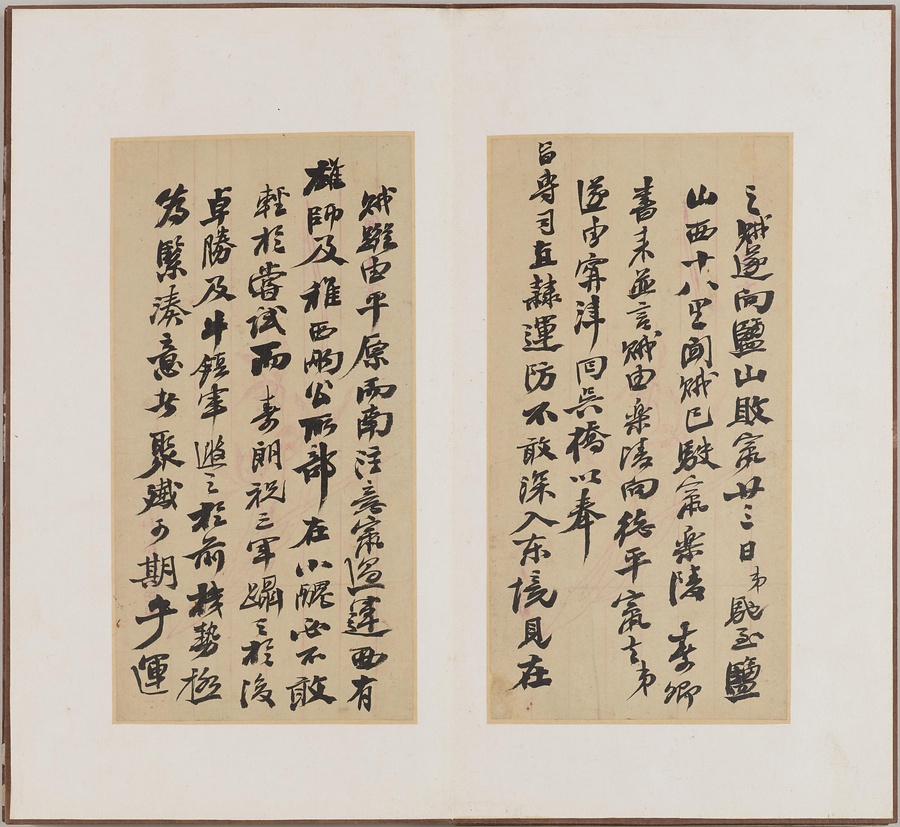 之賊遂向鹽山敗竄廿三日弟馳至鹽
山西十八里聞賊已駛竄樂陵春卿
書来並言賊由樂陵向德平竄去弟
遂由寧津回吳橋以奉
旨専司直隸運防不敢深入东境見在
賊雖由平原而南注意竄過運西有
雄師及稚西兩公所部在小醜必不敢
輕於嘗試而壽朗祝三軍躡之於後
卓勝及牛鎮軍遮之於前機勢極
為緊湊意者聚殲可期乎運